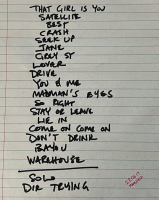 THAT GIRL IS YOU
SATELLITE
BEST
CRASH
SEEK UP
JANE
GREY ST
LOVER
DRIVE
YOU & ME
MADMAN'S EYES
SO RIGHT
STAY OR LEAVE
LIE IN
COME ON COME ON
DON'T DRINK
BAYOU
WAREHOUSE
SOLO
DIR TRYING